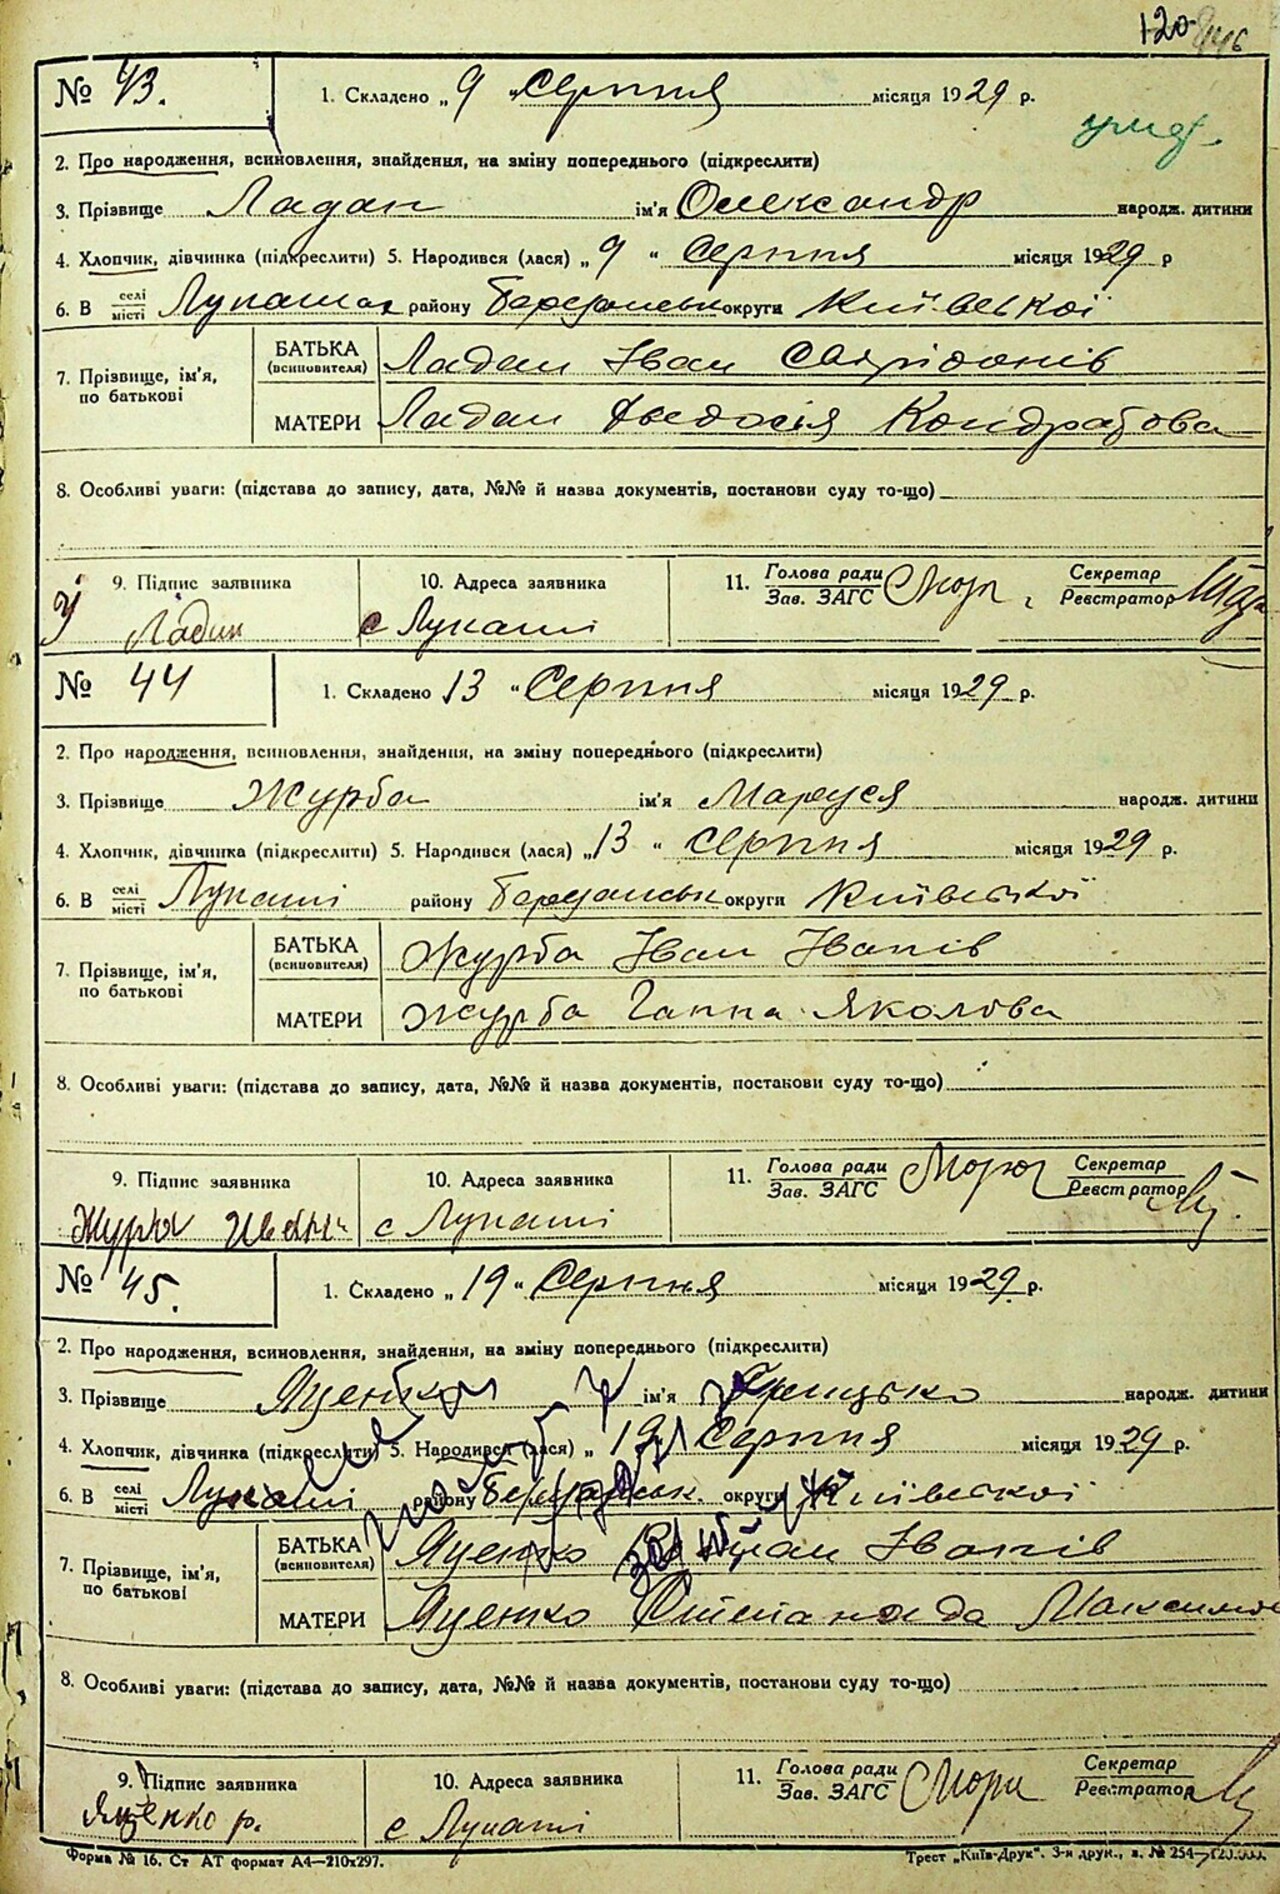 120
№ 43. 1. Складено „9" Серпня місяця 1929 р.
2. Про народження, всиновлення, знайдення, на зміну попереднього (підкреслити)
3. Прізвище Ладан ім'я Олександр народж. дитини
4. Хлопчик, дівчинка (підкреслити) 5. Народився (лася) „9" Серпня місяця 1929 р
6. В селі місті Лукашах району Березанськ округи Київської
7. Прізвище, ім'я, по батькові БАТЬКА (всиновителя) Ладан Іван Свиридонів
МАТЕРИ Ладан Федосія Кондратова
8. Особливі уваги: (підстава до запису, дата, №№ й назва документів, постанови суду то-що)
9. Підпис заявника 10. Адреса заявника 11. Голова ради Зав. ЗАГС Секретар Реєстратор
Ладан с Лукаші
№ 44 1. Складено 13 " Серпня місяця 1929 р.
2. Про народження, всиновлення, знайдення, на зміну попереднього (підкреслити)
3. Прізвище Журба ім'я Маруся народж. дитини
4. Хлопчик, дівчинка (підкреслити) 5. Народився (лася) „13" Серпня місяця 1929 р.
6. В селі місті Лукаші району Березанськ округи Київської
7. Прізвище, ім'я, по батькові БАТЬКА (всиновителя) Журба Іван Іванів
МАТЕРИ Журба Ганна Яковова
8. Особливі уваги: (підстава до запису, дата, №№ й назва документів, постанови суду то-що)
9. Підпис заявника 10. Адреса заявника 11. Голова ради Зав. ЗАГС Секретар Реєстратор
Журба с Лукаші
№ 45. 1. Складено „19" Серпня місяця 1929 р.
2. Про народження, всиновлення, знайдення, на зміну попереднього (підкреслити)
3. Прізвище Яценко ім'я Грицько народж. дитини
4. Хлопчик, дівчинка (підкреслити) 5. Народився (лася) „19 Серпня місяця 1929 р.
6. В селі місті Лукаші району Березанськ. округи Київської
7. Прізвище, ім'я, по батькові БАТЬКА (всиновителя) Яценко Іванів
МАТЕРИ Яценко Степанида
8. Особливі уваги: (підстава до запису, дата, №№ й назва документів, постанови суду то-що)
9. Підпис заявника 10. Адреса заявника 11. Голова ради Зав. ЗАГС Секретар Реєстратор
Яценко р. с Лукаші
Форма № 16. Ст АТ формат А4—210х297. Трест „Київ-Друк". 3-я друк., з. № 254—120.000.